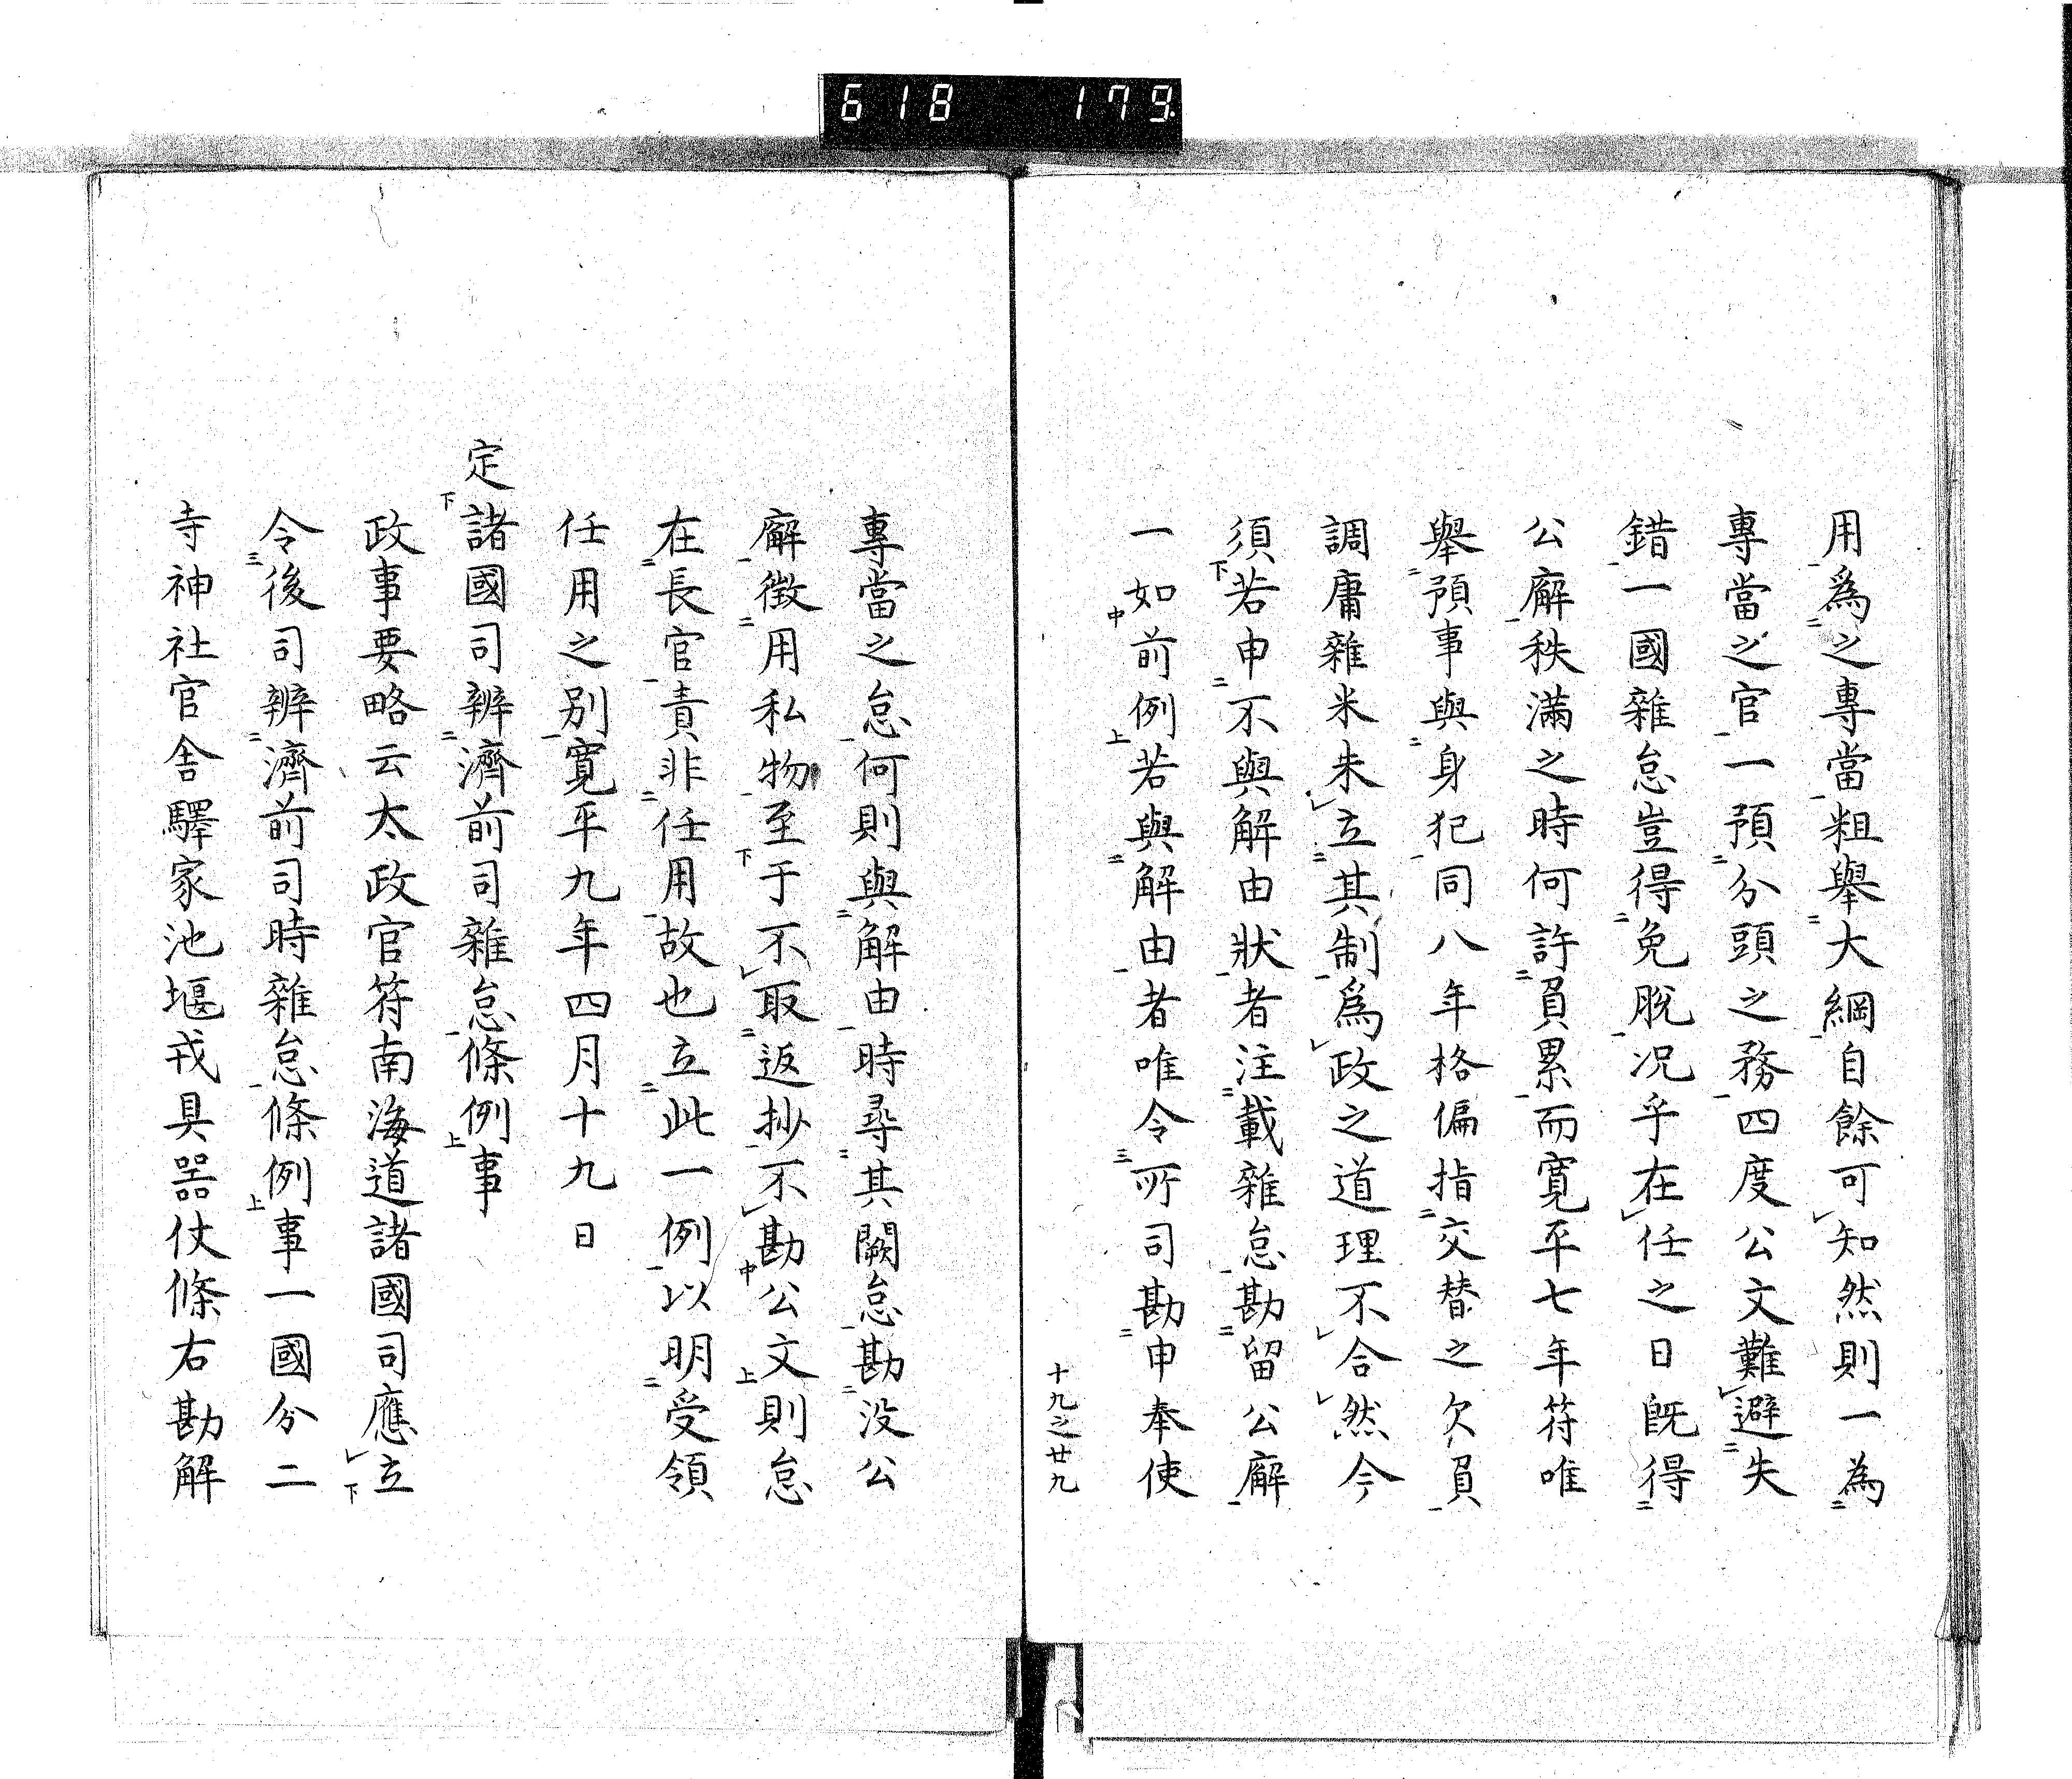 618 179
用爲之專當粗擧大綱自餘可知然則一為
專當之官一預分頭之務四度公文難避失
錯一國雜怠豈得免脱况乎在任之日既得
公廨秩滿之時何許負累而寛平七年符唯
擧預事與身犯同八年格偏指交替之欠負
調庸雜米未立其制爲政之道理不合然今
須若申不與解由狀者注載雜怠勘留公廨
一如前例若與解由者唯令所司勘申奉使
十九之廿九
專當之怠何則與解由時尋其闕怠勘没公
廨徴用私物至于不取返抄不勘公文則怠
在長官責非任用故也立此一例以明受領
任用之別寛平九年四月十九日
定諸國司辨濟前司雜怠條例事
政事要略云太政官符南海道諸國司應立
令後司辨濟前司時雜怠條例事一國分二
寺神社官舎驛家池堰戎具器仗條右勘解